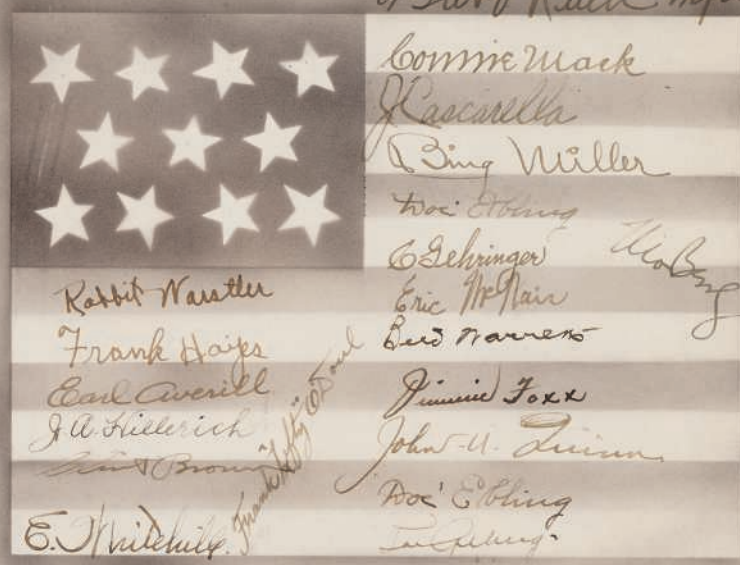 Connie Mack
J Cascarella
Bing Miller
Doc Ebling
C Gehringer
Moe Berg
Eric McNair
Bud
Jimmie Foxx
John U. Quinn
Doc' Ebling
Rabbit Warstler
Frank Hayes
Earl Averill
J. A. Hillerich
Brown
Frank "Lefty" O'Doul
E. Whitehill.